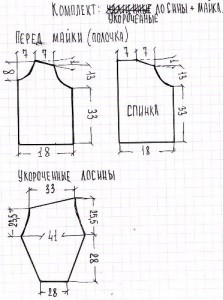 КОМПЛЕКТ: ЛОСИНЫ + МАЙКА.
УКОРОЧЕННЫЕ
ПЕРЕД МАЙКИ (ПОЛОЧКА)
7 7
8
13
33
18
СПИНКА
13
33
18
УКОРОЧЕННЫЕ ЛОСИНЫ
33
23,5
25,5
41
28
28